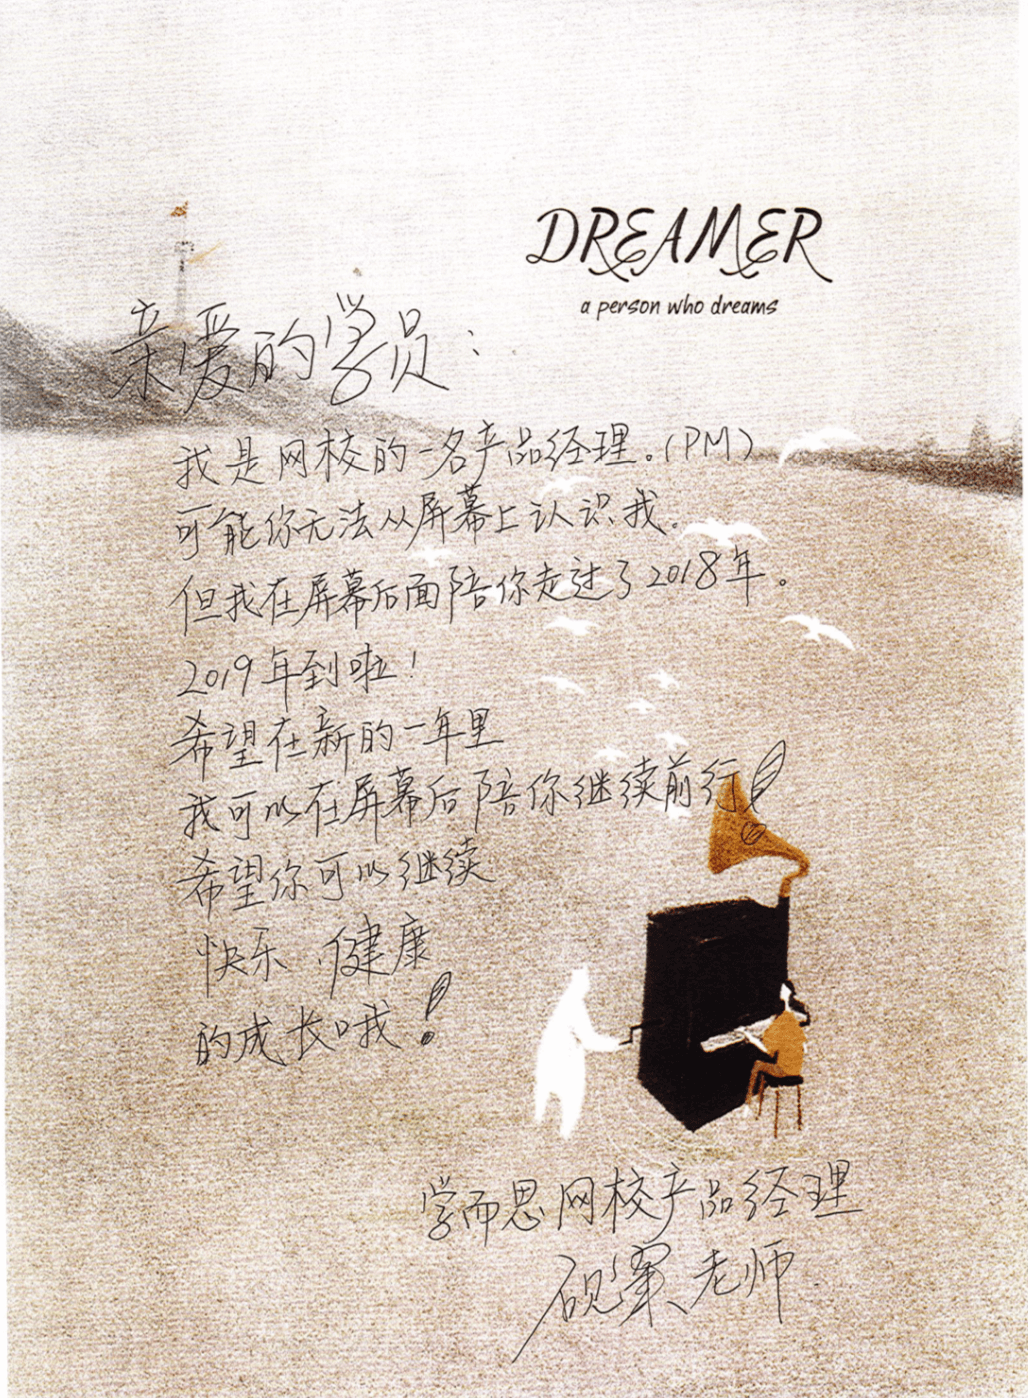 DREAMER
a person who dreams
亲爱的学员：
我是网校的一名产品经理。(PM)
可能你无法从屏幕上认识我。
但我在屏幕后面陪你走过了2018年。
2019年到啦！
希望在新的一年里
我可以在屏幕后陪你继续前行！
希望你可以继续
快乐、健康
的成长哦！
学而思网校产品经理
砚 老师